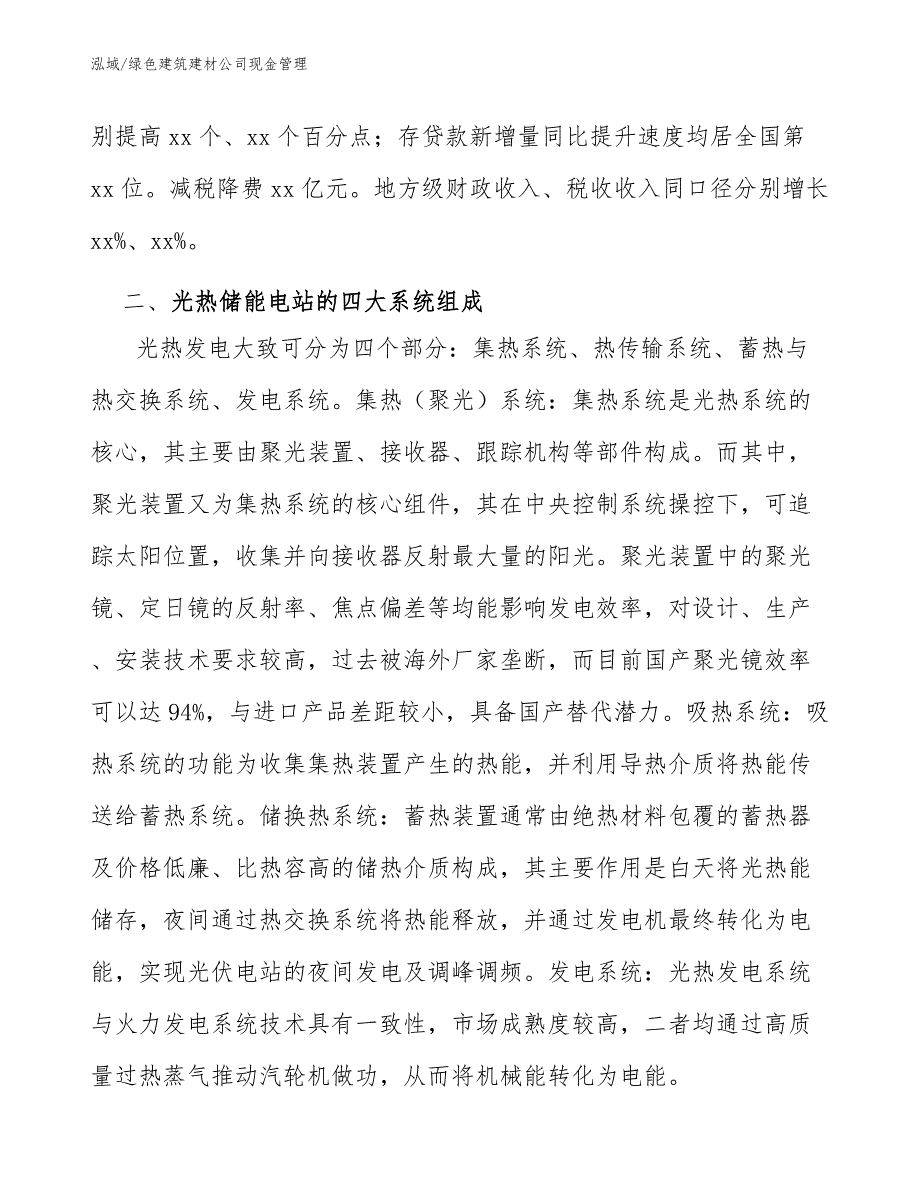 泓域/绿色建筑建材公司现金管理
别提高 xx 个、xx 个百分点；存贷款新增量同比提升速度均居全国第
xx 位。减税降费 xx 亿元。地方级财政收入、税收收入同口径分别增长
xx%、xx%。
二、光热储能电站的四大系统组成
光热发电大致可分为四个部分：集热系统、热传输系统、蓄热与
热交换系统、发电系统。集热（聚光）系统：集热系统是光热系统的
核心，其主要由聚光装置、接收器、跟踪机构等部件构成。而其中，
聚光装置又为集热系统的核心组件，其在中央控制系统操控下，可追
踪太阳位置，收集并向接收器反射最大量的阳光。聚光装置中的聚光
镜、定日镜的反射率、焦点偏差等均能影响发电效率，对设计、生产
、安装技术要求较高，过去被海外厂家垄断，而目前国产聚光镜效率
可以达 94%，与进口产品差距较小，具备国产替代潜力。吸热系统：吸
热系统的功能为收集集热装置产生的热能，并利用导热介质将热能传
送给蓄热系统。储换热系统：蓄热装置通常由绝热材料包覆的蓄热器
及价格低廉、比热容高的储热介质构成，其主要作用是白天将光热能
储存，夜间通过热交换系统将热能释放，并通过发电机最终转化为电
能，实现光伏电站的夜间发电及调峰调频。发电系统：光热发电系统
与火力发电系统技术具有一致性，市场成熟度较高，二者均通过高质
量过热蒸气推动汽轮机做功，从而将机械能转化为电能。